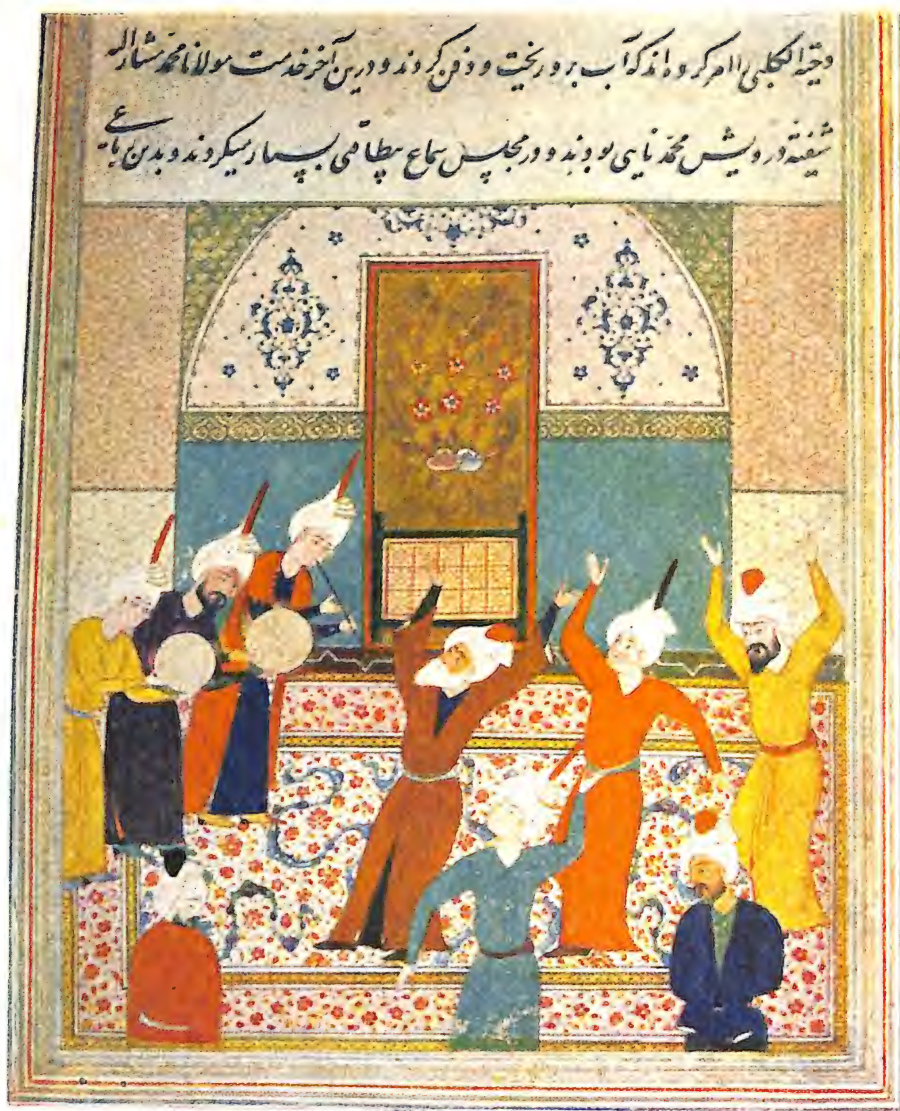 دخته الکجلی را امر کرده‌اند که آب برو ریخت و دفن کردند و درین آخر خدمت مولانا محمد مشار الیه
شیفته درویش محمد نایی بودند و در مجلس سماع بیطاقتی بسیار میکردند و بدین رباعی